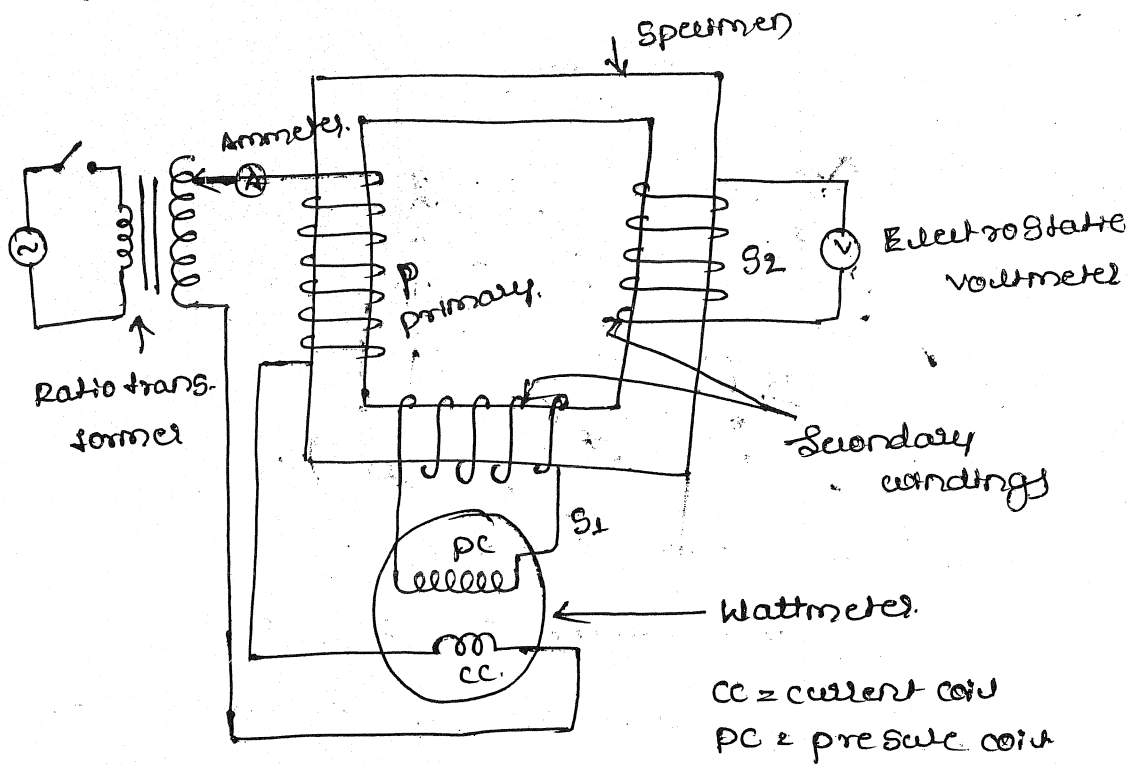 Specimen
Ammeter.
A
~
P
primary.
S2
V
Electrostatic
voltmeter
Ratio trans-
former
Secondary
windings
S1
PC
Wattmeter.
CC.
CC = current coil
PC = presure coil